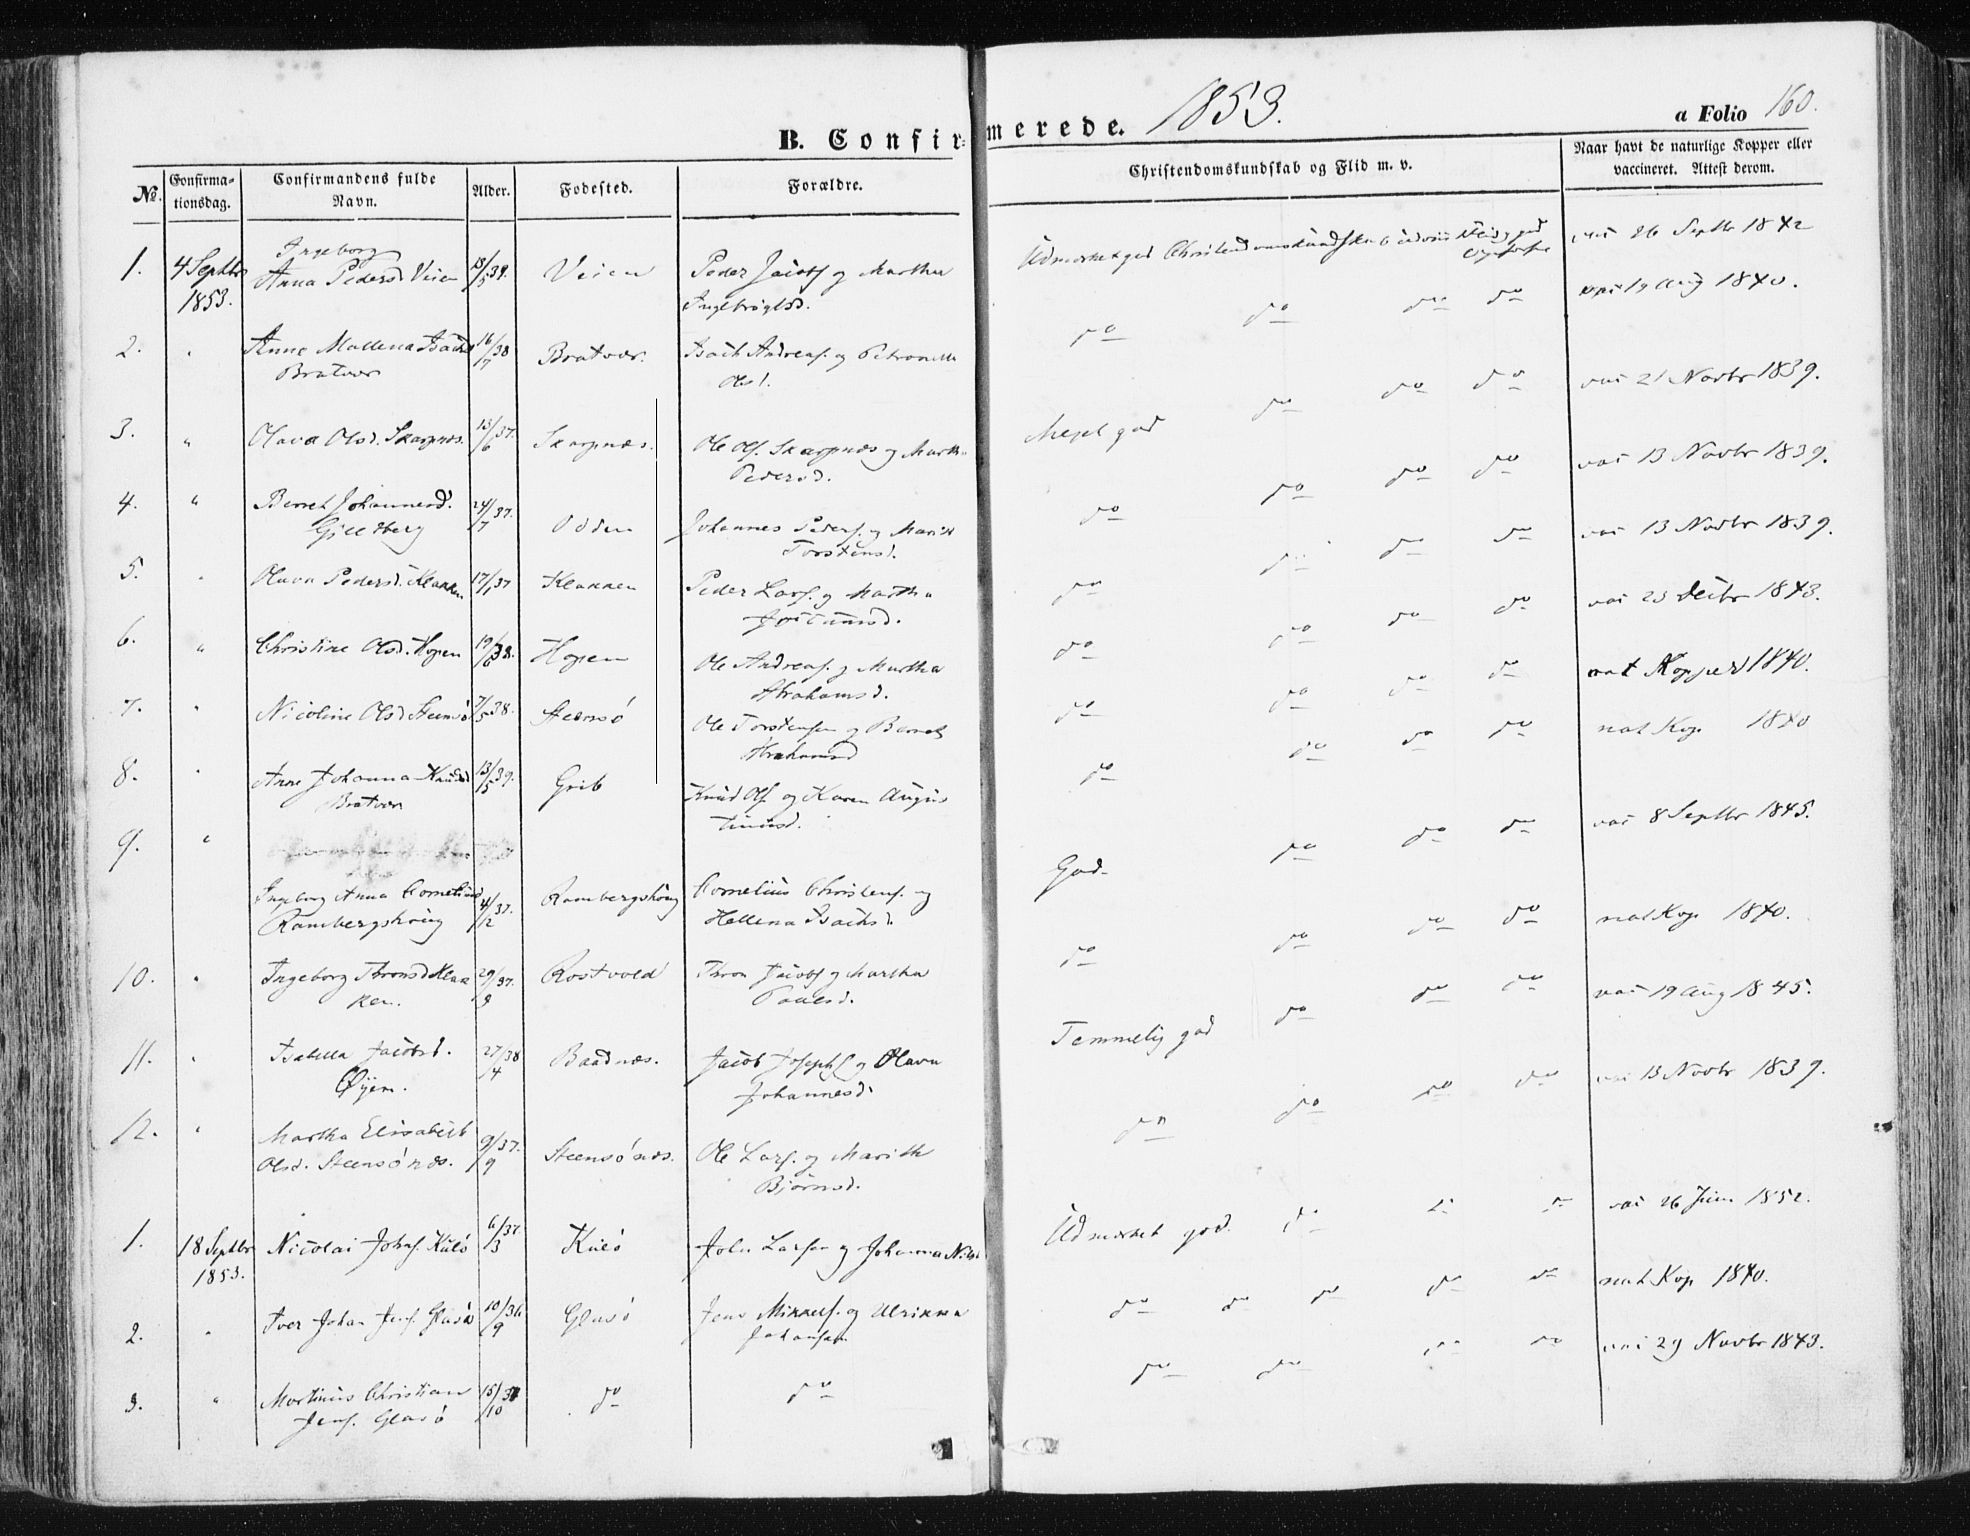 B. Confirmerede. 1853. a Folio 160.
No. Confirmationsdag. Confirmandens fulde Navn. Alder. Fodested. Forældre. Christendomskundskab og Flid m. v. Naar havt de naturlige Kopper eller vaccineret. Attest derom.
1. 4 Septbr 1853. Ingeborg Anna Pedersd Veien 18/5 39. Veien Peder Jacobs og Martha Ingebrigtsd. Udmærket god Christendomskundskab vac 26 Septbr 1842
2. " Anne Mallena Isachsd Bratvær 16/7 38 Bratvær. Isach Andreas. og Petronelle Olsd. do do do do vac 19 Aug 1840.
3. " Olava Olsd. Skarpnæs. 13/6 37. Skarpnæs. Ole Ols. Skarpnæs og Martha Pedersd. Meget god do do do vac 21 Novbr 1839.
4. " Berret Johannesd. Gjeldberg 24/7 37. Odden Johannes Peders. og Marit Torstensd. do do do do vac 13 Novbr 1839.
5. " Olava Pedersd. Klakken 17/1 37 Klakken Peder Lars. og Martha do do do do vac 13 Novbr 1839.
6. " Christine Olsd. Hopen 19/6 38. Hopen Ole Andreas. og Martha Abrahamsd. do do do do vac 23 Decbr 1843.
7. " Nicoline Olsd Steensø 7/5 38. Steensø Ole Torstensen og Berret Abrahamsd do do do do nat Kopper 1840.
8. " Anne Johanna Knudsd Bratvær 13/5 39. Grib Knud Ols og Karen Augustinusd. do do do do nat Kop 1840
9. " Ingeborg Anna Corneliusd Rambergshoug 4/12 37. Rambergshoug Cornelius Christens. og Hellena Isachsd. God do do do vac 8 Septbr 1845.
10. " Ingeborg Thronsd Klakken. 29/8 37. Rostvold Thron Jacobs og Martha Paulsd. do do do do nat Kop 1840.
11. " Isabella Jacobsd. Øyen. 27/4 38 Baadnæs. Jacob Josephs og Olava Johannesd. Temmelig god do do do vac 19 Aug 1845.
12. " Martha Elisabeth Olsd. Steensønæs. 9/9 37. Steensønæs. Ole Lars. og Marith Bjørnsd. do do do do vac 13 Novbr 1839.
1. 18 Septbr 1853. Nicolai Johns. Kulø 6/3 37. Kulø John Larsen og Johanna Nilsd Udmærket god. do do do vac 26 Juni 1852.
2. " Iver Johan Jens. Glasø 10/9 36 Glasø Jens Mikkels. og Ulrikka Johansen do do do do do nat Kop 1840.
3. " Martinus Christian Jens. Glasø 15/10 do do do do do do vac 29 Novbr 1843.